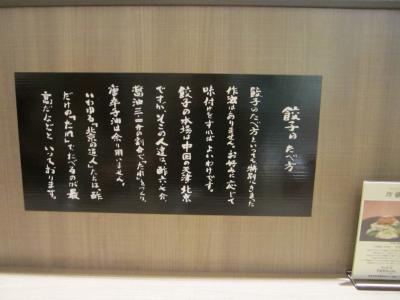 餃子のたべ方
餃子のたべ方といっても特別にきまった
作法はありません。お好みに応じて
味付けをすればよいわけです。
餃子の本場は中国の天津、北京
ですが、そこの人達は、酢六〜七分、
醤油三〜四分の割合で「たれ」をつくり、
唐辛子油は余り用いません。
いわゆる「北京の通人」たちは、酢
だけの「たれ」でたべるのが最
高だなどと、いっております。